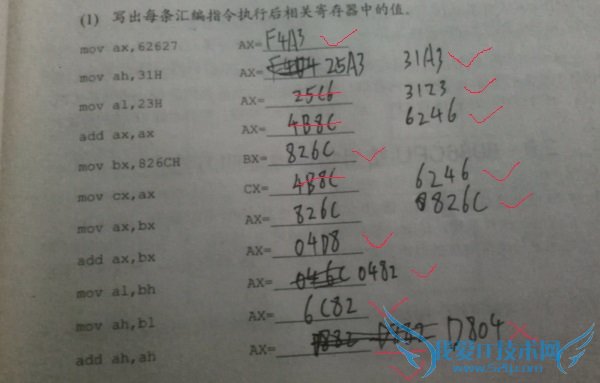 (1) 写出每条汇编指令执行后相关寄存器中的值。
mov ax,62627 AX= F4A3
mov ah,31H AX= 25A3 31A3
mov al,23H AX= 25C6 3123
add ax,ax AX= 4B8C 6246
mov bx,826CH BX= 826C
mov cx,ax CX= 4B8C 6246
mov ax,bx AX= 826C 826C
add ax,bx AX= 04D8
mov al,bh AX= 046C 0482
mov ah,bl AX= 6C82
add ah,ah AX= D882 D804
我爱IT技术网
www.52ij.com